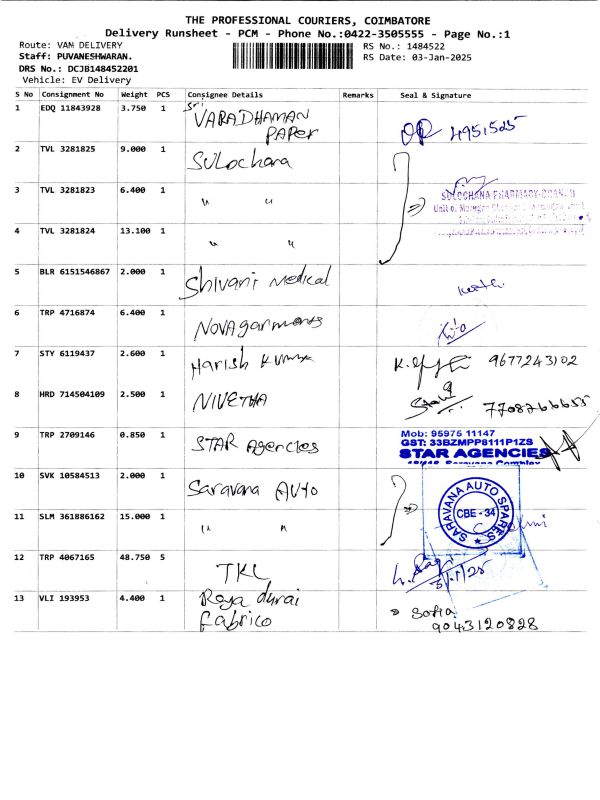 THE PROFESSIONAL COURIERS, COIMBATORE
Delivery Runsheet - PCM - Phone No.:0422-3505555 - Page No.:1
Route: VAN DELIVERY RS No.: 1484522
Staff: PUVANESHWARAN. RS Date: 03-Jan-2025
DRS No.: DCJB148452201
Vehicle: EV Delivery
S No Consignment No Weight PCS Consignee Details Remarks Seal & Signature
1 EDQ 11843928 3.750 1 Sri VARADHAMAN PAPer 4951525
2 TVL 3281825 9.000 1 SULochana
3 TVL 3281823 6.400 1 " "
SULOCHANA PHARMACY
4 TVL 3281824 13.100 1 " "
5 BLR 6151546867 2.000 1 Shivani Medical
6 TRP 4716874 6.400 1 NOVAgarments
7 STY 6119437 2.600 1 Harish Kumar 9677243102
8 HRD 714504109 2.500 1 NIVETHA 7708266655
9 TRP 2709146 0.850 1 STAR Agencies
Mob: 95975 11147
GST: 33BZMPP8111P1ZS
STAR AGENCIES
Saravana Complex
10 SVK 10584513 2.000 1 Saravana AUto
SARAVANA AUTO SPARES
CBE - 34
11 SLM 361886162 15.000 1 " "
12 TRP 4067165 48.750 5 TKL
13 VLI 193953 4.400 1 Roja durai
fabrico
Sofia
9043120828